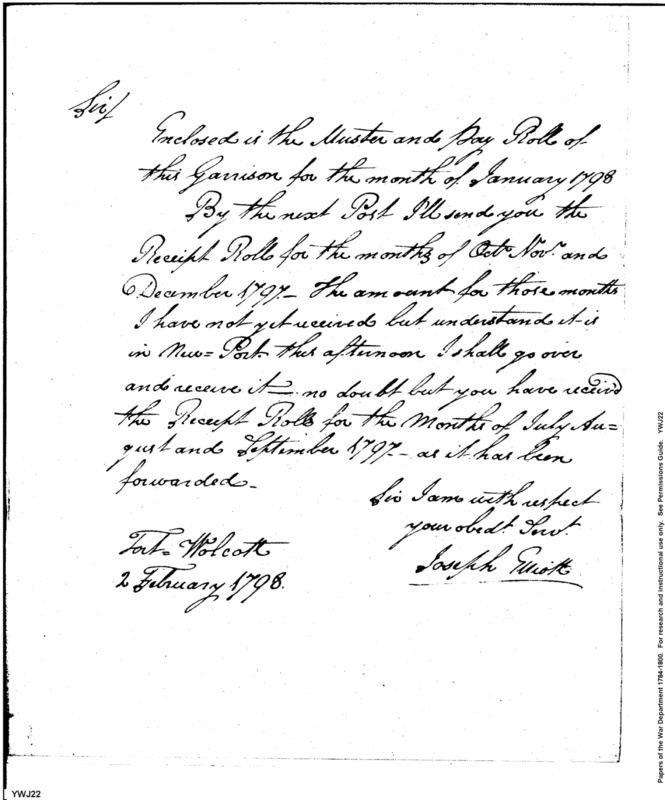 Sir/
Enclosed is the Muster and Pay Roll of
this Garrison for the month of January 1798
By the next Post I'll send you the
Receipt Roll for the months of Octr Novr and
December 1797 - The amount for those months
I have not yet received but understand it is
in New=Port this afternoon I shall go over
and receive it - no doubt but you have receiv'd
the Receipt Rolls for the Months of July Au=
gust and September 1797 - as it has been
forwarded -
Sir I am with respect
your obedt Servt
Joseph Elliott
Fort=Wolcott
2 February 1798.
Papers of the War Department 1784-1800. For research and instructional use only. See Permissions Guide. YWJ22
YWJ22